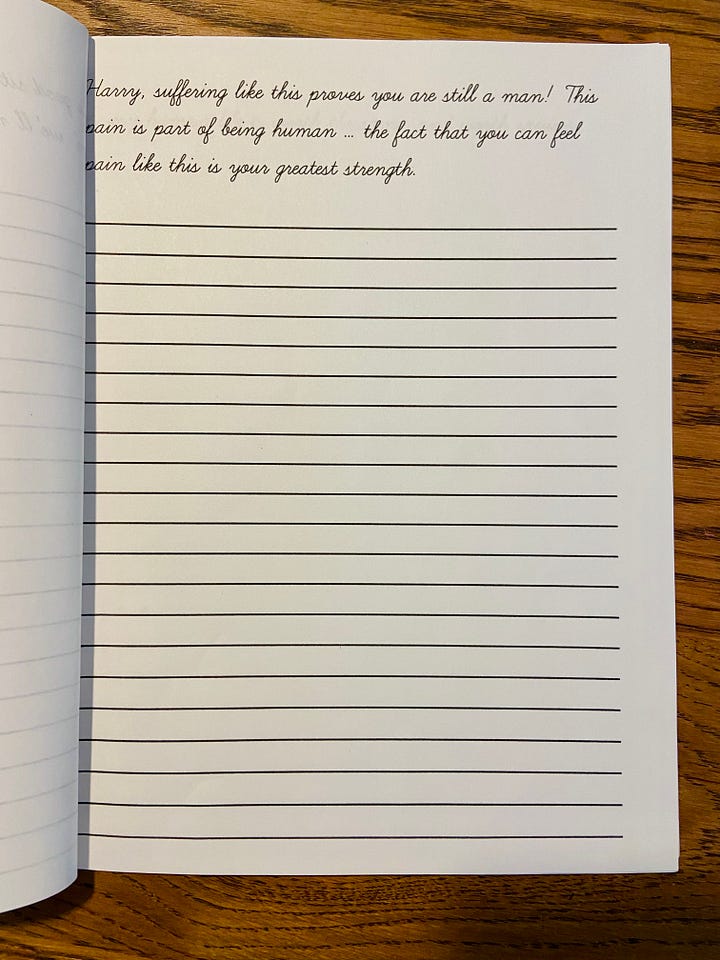 Harry, suffering like this proves you are still a man! This
pain is part of being human ... the fact that you can feel
pain like this is your greatest strength.